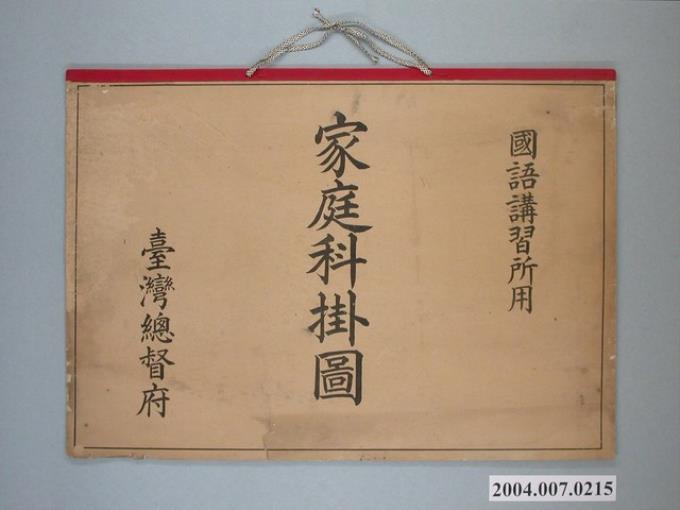 國語講習所用
家庭科掛圖
臺灣總督府
2004.007.0215